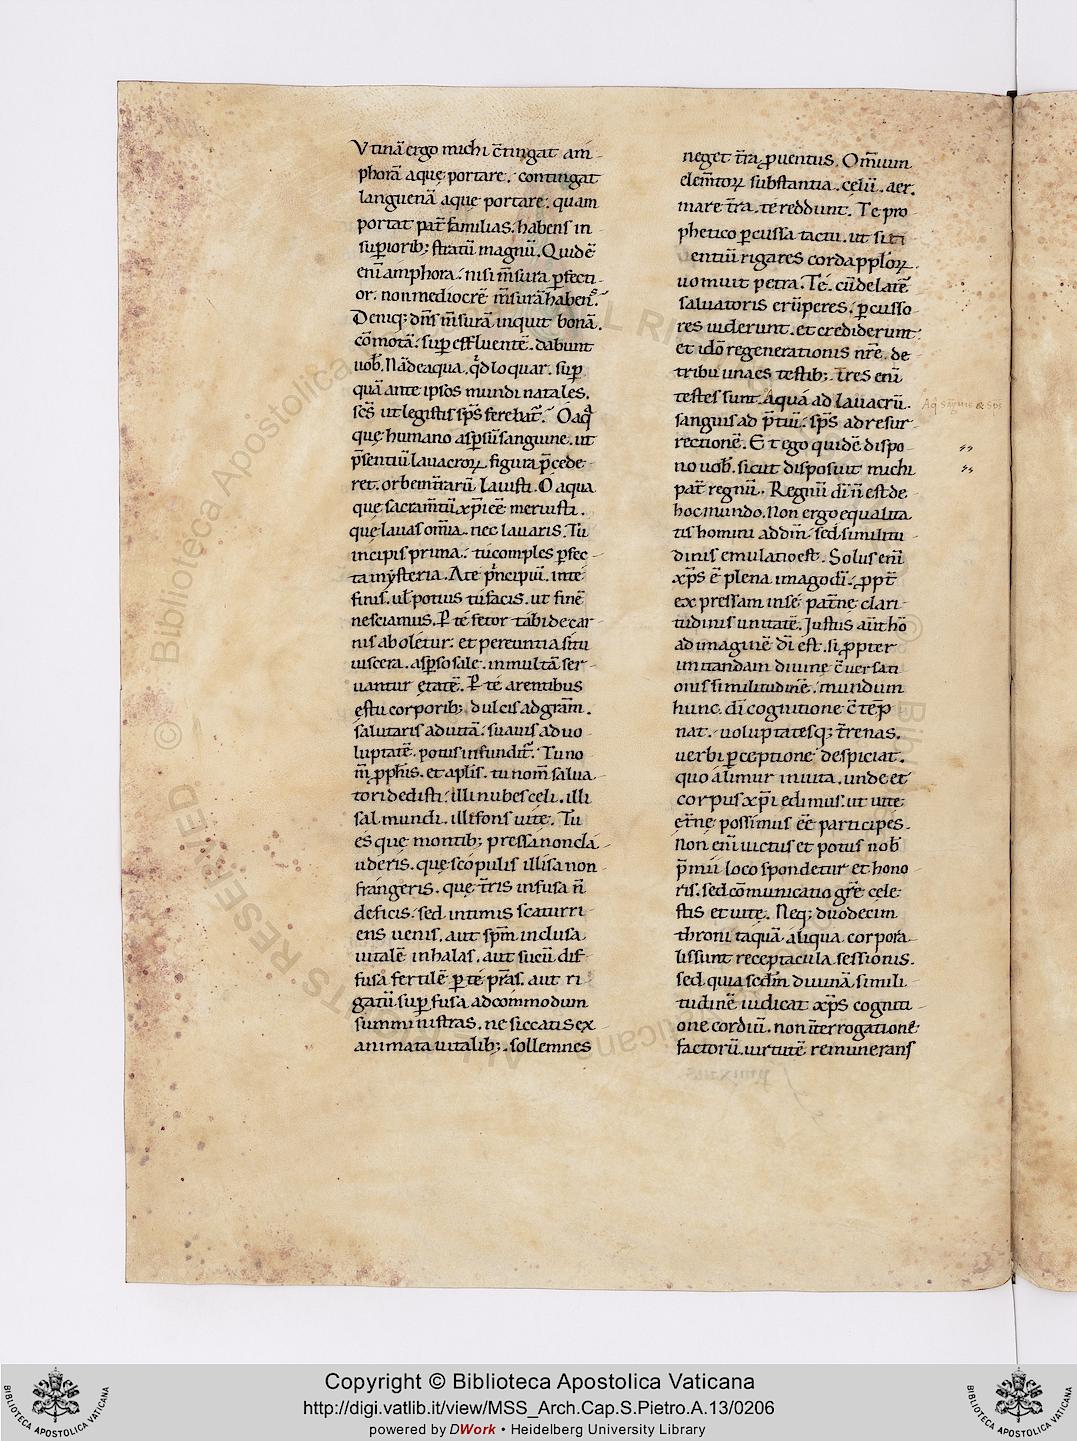 Vtinā ergo michi c̄tingat am
phorā aquę portare. contingat
languenā aquę portare. quam
portat pat̄ familias. habens in
supiorib; stratū magnū. Quidē
eni amphora. nisi m̄sura pfecti
or. non mediocrē m̄surā haben̄.
Deniq; dn̄s m̄surā inquit bonā.
cōmotā. sup effluentē. dabunt
uob̄. Nā de aqua. qd̄ loquar. sup
quā ante ipsos mundi natales.
ut legistis sp̄s ferebat̄. O aq̄
quę humano aspsū sanguine. ut
p̄sentiū lauacroꝝ figura p̄cede
ret. orbem t̄rarū lauisti. O aqua
quę sacram̄tū xp̄i ēē meruisti.
quę lauas om̄ia. nec lauaris. Tu
incipis prima. tu comples pfec
ta mysteria. A te p̄ncipiū. in te
finis. ul potius tu facis. ut finē
nesciamus. P te fetor tabidę car
nis aboletur. et pereuntia situ
uiscera. aspso sale. in multā ser
uantur ętatē. P te arentibus
ęstu corporib; dulcis ad gram̄.
salutaris ad uitā. suauis ad uo
luptatē. potus infundit̄. Tu no
m̄ pph̄is. et aplis. tu nom̄ salua
tori dedisti. illi nubes celi. illi
sal mundi. ille fons uitę. Tu
es quę montib; pressa non cla
uderis. quę scopulis illisa non
frangeris. quę t̄ris infusa n̄
deficis. sed intimis scaturri
ens uenis. aut sp̄m inclusa
uitalē inhalas. aut sucū dif
fusa fertilē p te pr̄as. aut ri
gatū supfusa ad commodum
summi iustras. ne siccatis ex
animata uitalib;. sollemnes
neget t̄ra puentus. Om̄ium
elem̄toꝝ substantia. celū. aer.
mare t̄ra. te reddunt. Te pro
phetico pcussa tactu. ut siti
entiū rigares corda pploꝝ.
uomuit petra. Te. cū de latē
saluatoris erūperes. pcusso
res uiderunt. et crediderunt.
et idō regenerationis nrē. de
tribu una es testib;. Tres eni
testes sunt. Aqua ad lauacrū.
sanguis ad p̄tiū. sp̄s ad resur
rectionē. Et ego quidē dispo
no uob̄. sicut disposuit michi
pat̄ regnū. Regnū di n̄ est de
hoc mundo. Non ergo equalita
tis homini ad dm̄. sed similitu
dinis emulatio est. Solus eni
xp̄s ē plena imago di. ppt̄
expressam in se patnę clari
tudinis unitatē. Iustus aut̄ hō
ad imaginē di est. si ppter
imitandam diuinę c̄uersati
onis similitudinē. mundum
hunc. di cognitione c̄tēp
nat. uoluptatesq; t̄renas.
uerbi pceptione despiciat.
quo alimur in uita. unde et
corpus xp̄i edimus. ut uitę
et̄nę possimus ēē participes.
Non eni uictus et potus nob̄
p̄mii loco spondetur et hono
ris. sed cōmunicatio grē cele
stis et uitę. Neq; duodecim
throni taquā aliqua corpora
lis sunt receptacula sessionis.
sed quia scdm̄ diuinā simili
tudinē iudicat xp̄s cogniti
one cordiū. non īterrogationē
factorū. uirtutē remunerans
Copyright © Biblioteca Apostolica Vaticana
http://digi.vatlib.it/view/MSS_Arch.Cap.S.Pietro.A.13/0206
powered by DWork • Heidelberg University Library
BIBLIOTECA APOSTOLICA VATICANA
BIBLIOTECA APOSTOLICA VATICANA